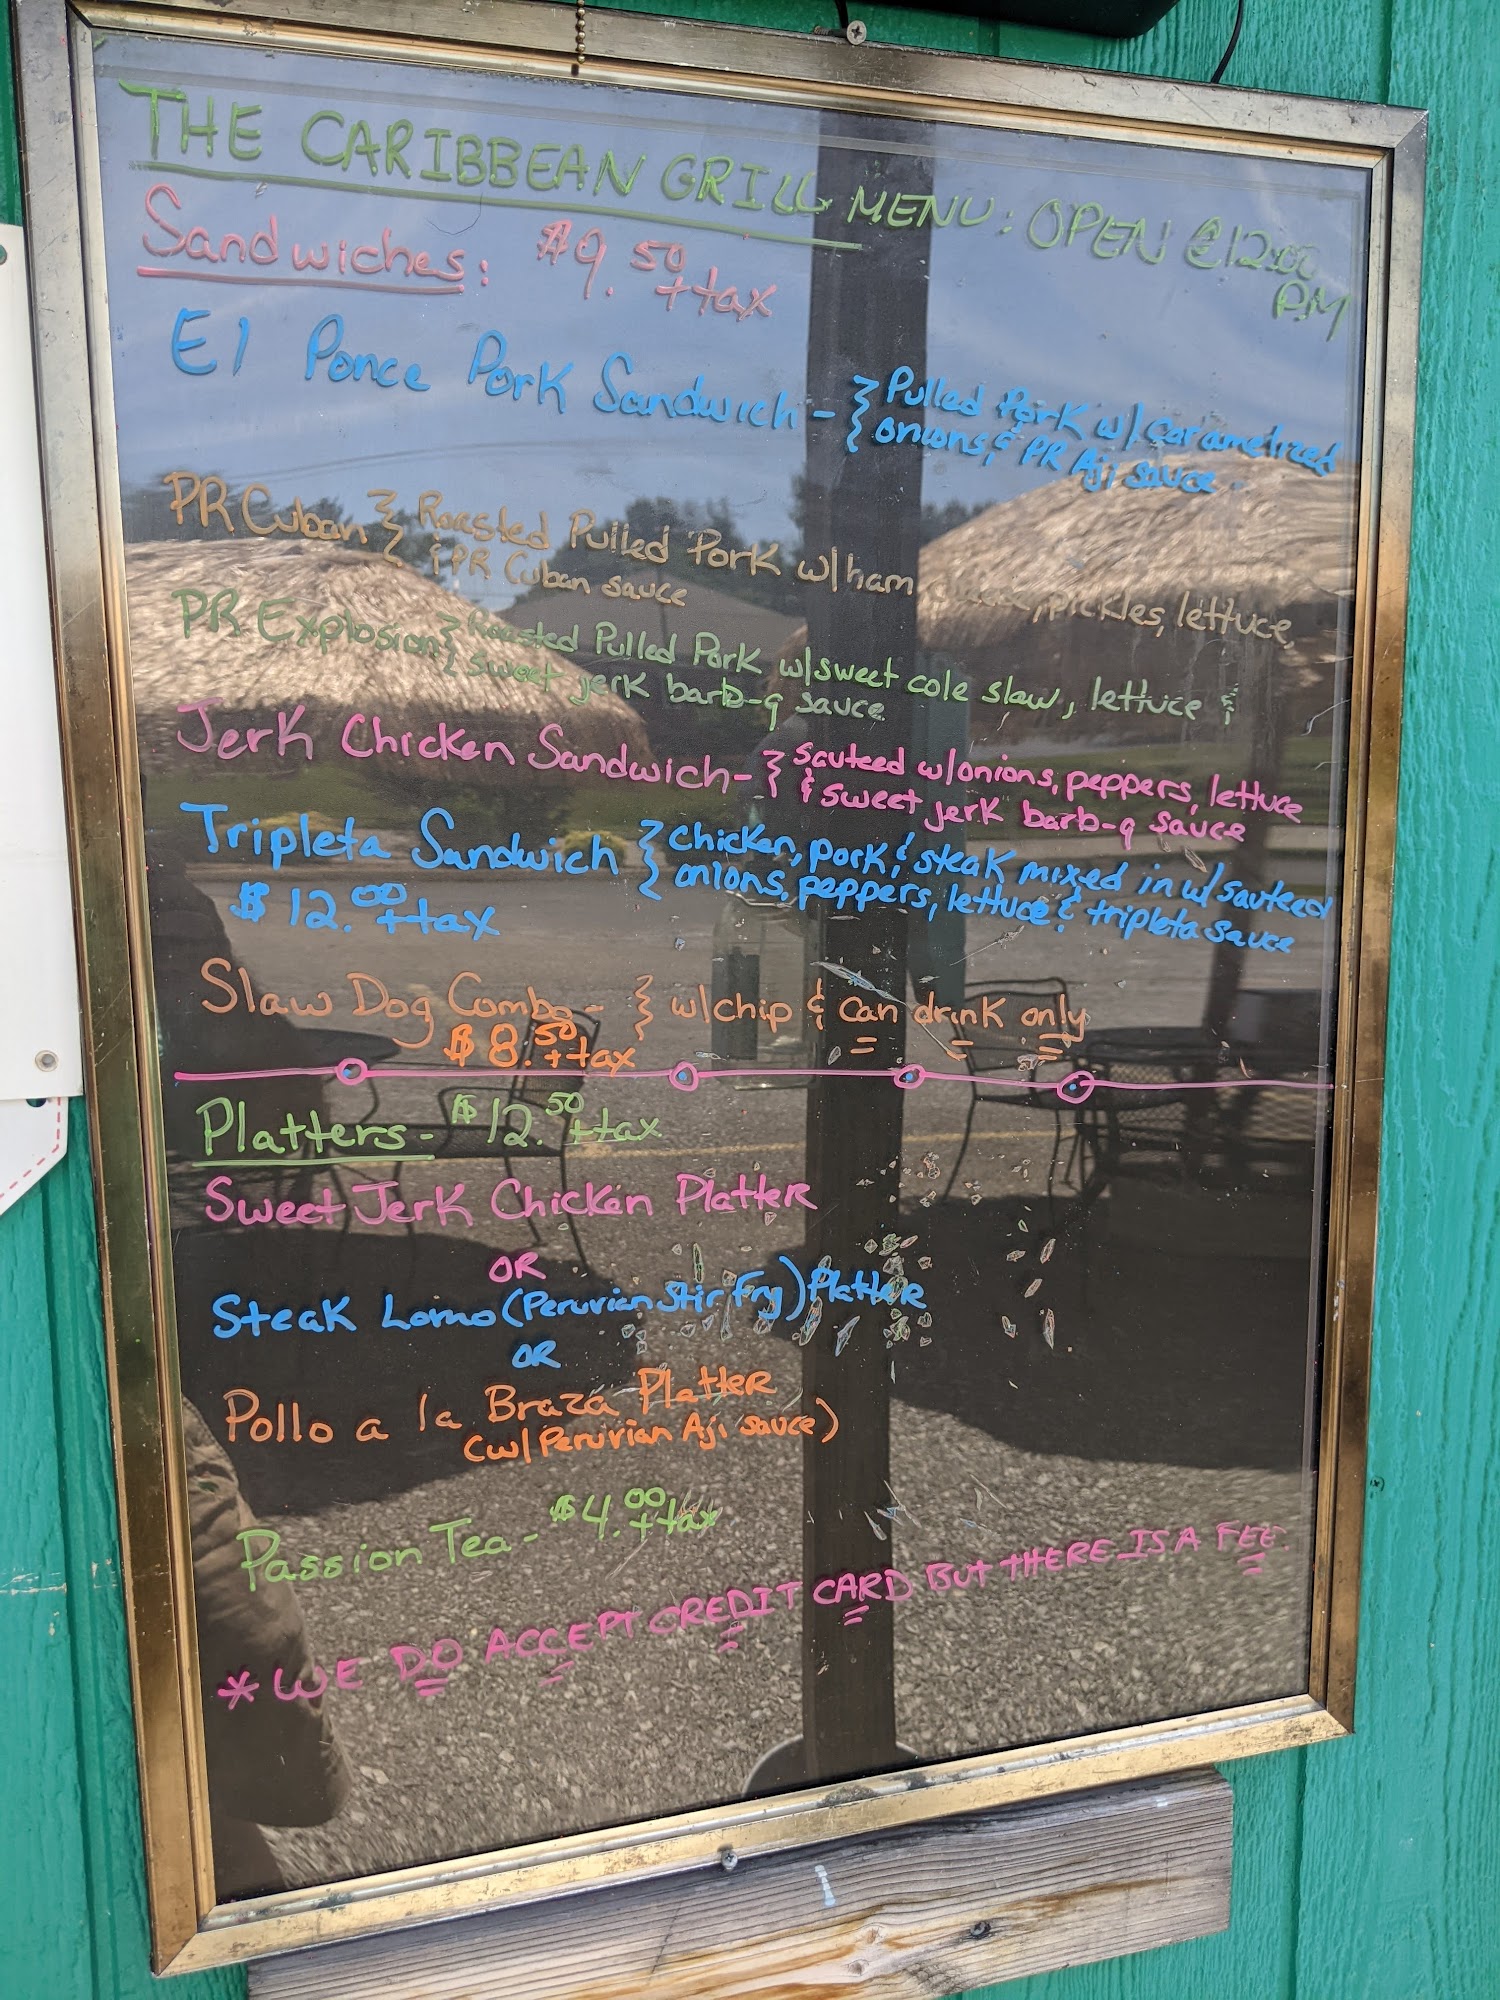 THE CARIBBEAN GRILL MENU: OPEN @ 12:00 PM
Sandwiches: $9.50 + tax
El Ponce Pork Sandwich - } Pulled Pork w/ caramelized
onions, & PR Aji sauce
PR Cuban } Roasted Pulled Pork w/ham pickles, lettuce
& PR Cuban sauce
PR Explosion } Roasted Pulled Pork w/sweet cole slaw, lettuce &
sweet jerk barb-q sauce
Jerk Chicken Sandwich - } sauteed w/onions, peppers, lettuce
& sweet jerk barb-q sauce
Tripleta Sandwich } chicken, pork, & steak mixed in w/ sauteed
$12.00 + tax onions, peppers, lettuce & tripleta sauce
Slaw Dog Combo - } w/chip & can drink only
$8.50 + tax
Platters - $12.50 + tax
Sweet Jerk Chicken Platter
OR
Steak Lomo (Peruvian Stir Fry) Platter
OR
Pollo a la Braza Platter
(w/Peruvian Aji sauce)
Passion Tea - $4.00 + tax
* WE DO ACCEPT CREDIT CARD BUT THERE IS A FEE.